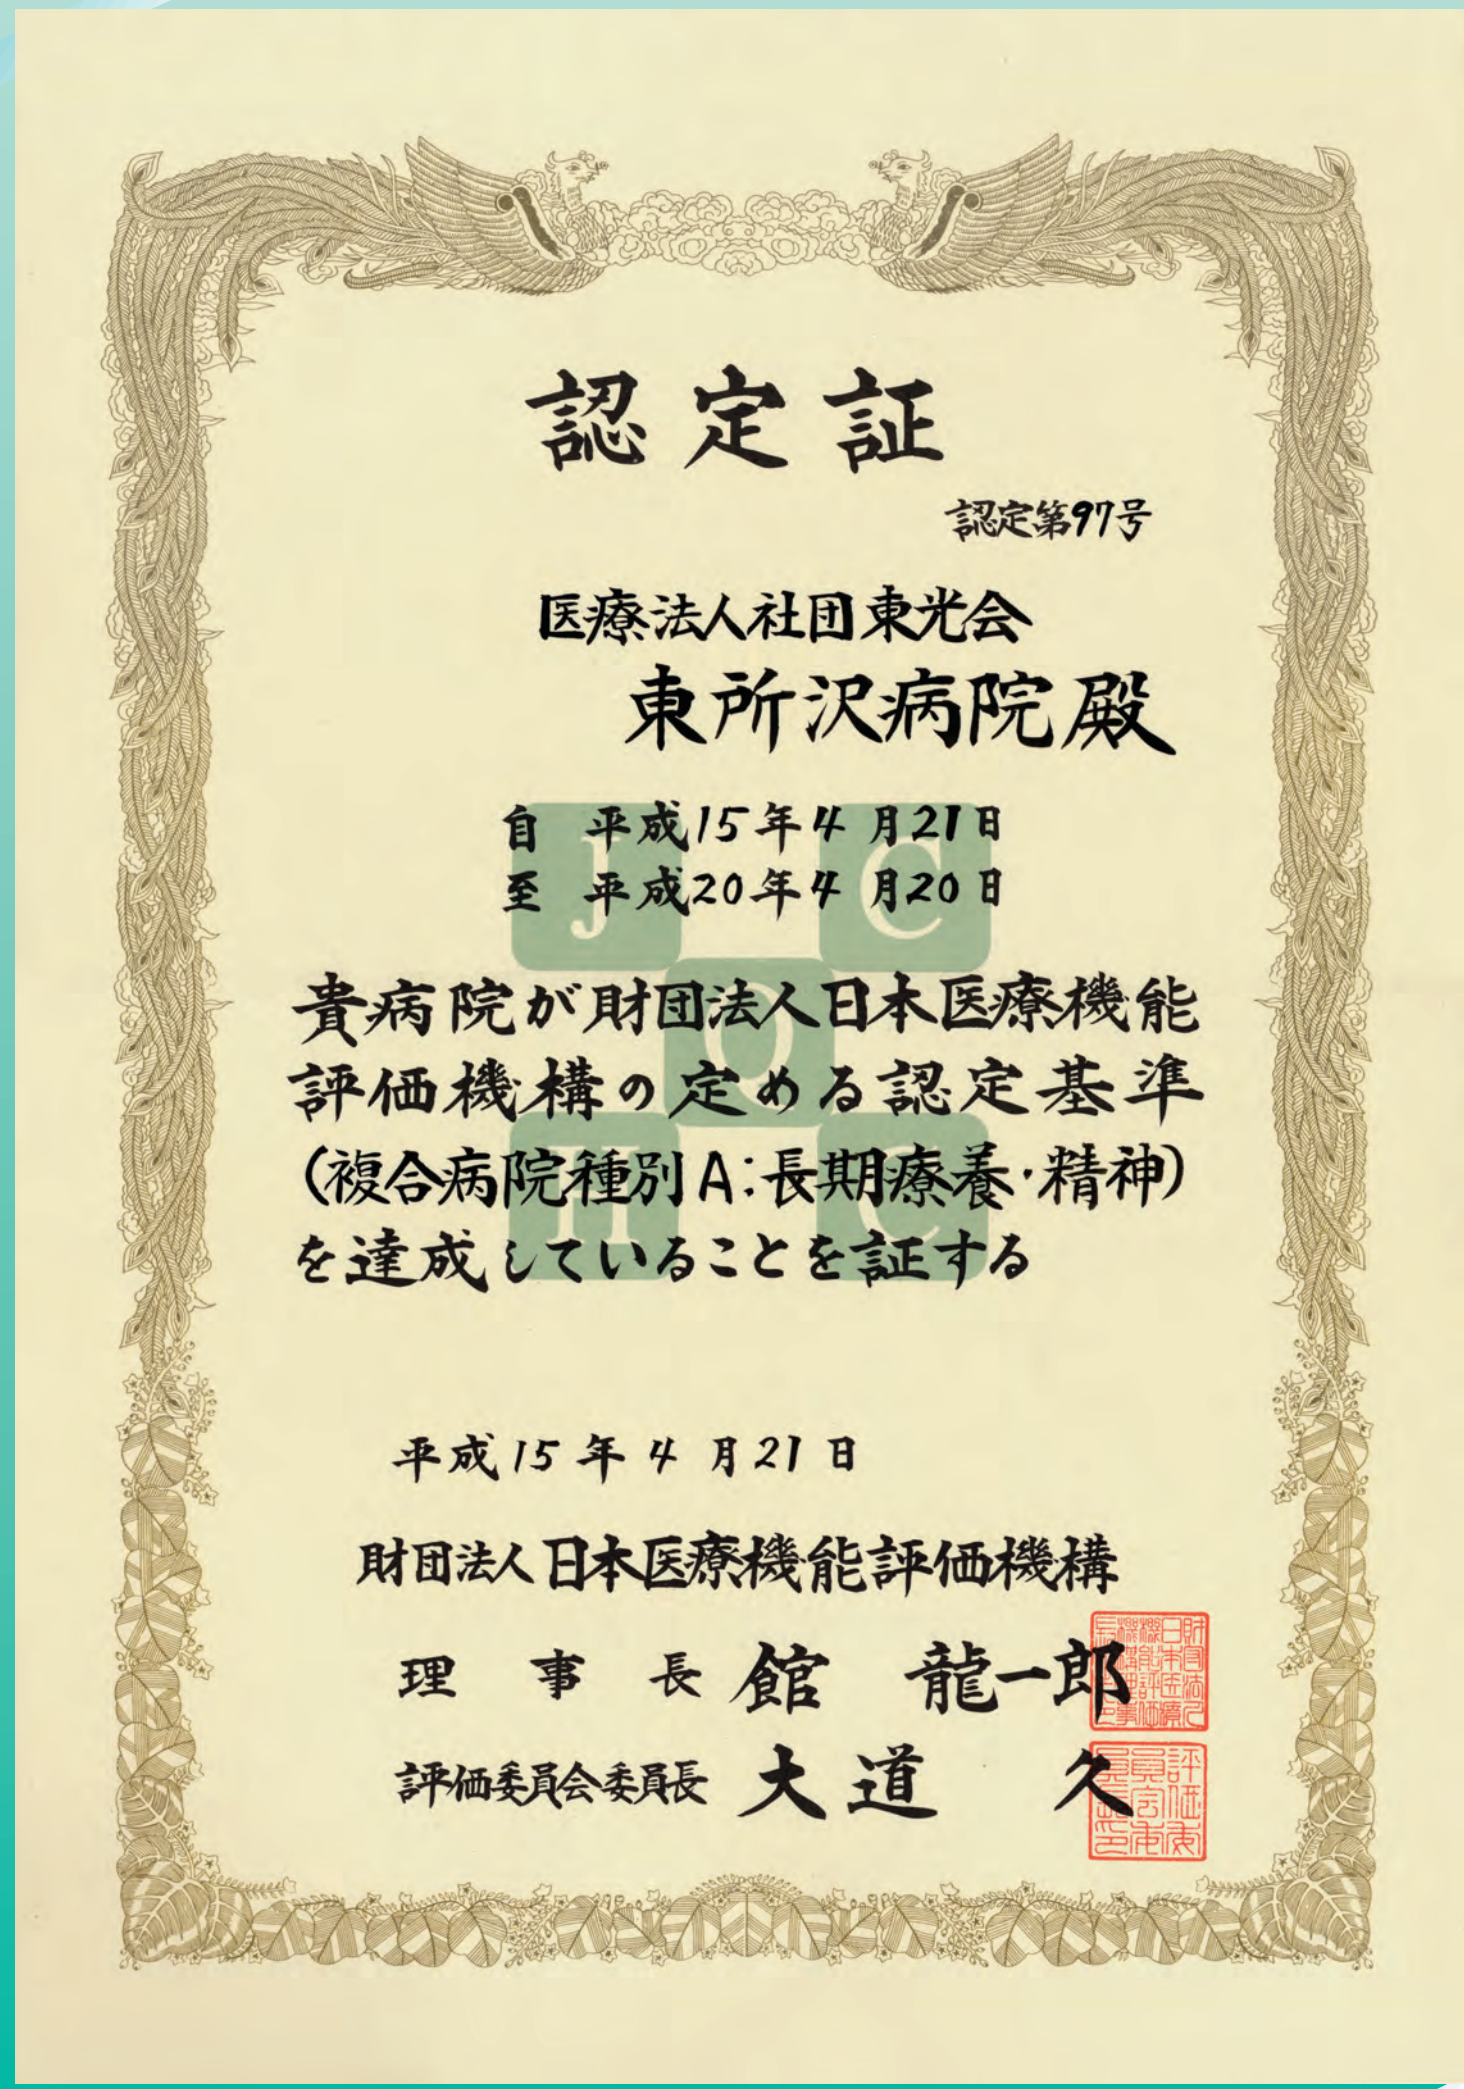 認定証
認定第97号
医療法人社団東光会
東所沢病院殿
自 平成15年4月21日
至 平成20年4月20日
貴病院が財団法人日本医療機能
評価機構の定める認定基準
(複合病院種別A:長期療養・精神)
を達成していることを証する
平成15年4月21日
財団法人日本医療機能評価機構
理事長 館 龍一郎
評価委員会委員長 大道 久
J C
Q
H C